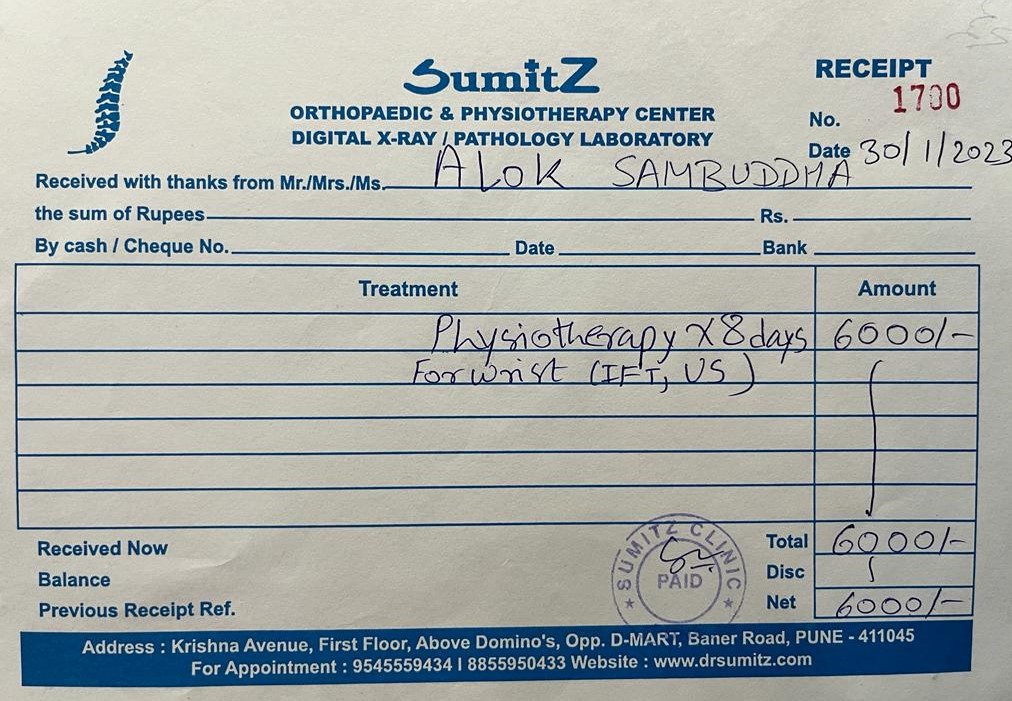 SumitZ
ORTHOPAEDIC & PHYSIOTHERAPY CENTER
DIGITAL X-RAY / PATHOLOGY LABORATORY
RECEIPT
No. 1700
Date 30/1/2023
Received with thanks from Mr./Mrs./Ms. ALOK SAMBUDDHA
the sum of Rupees Rs.
By cash / Cheque No. Date Bank
Treatment Amount
Physiotherapy X 8 days 6000/-
For wrist (IFT, US)
Received Now Total 6000/-
Balance Disc
Previous Receipt Ref. Net 6000/-
SUMITZ CLINIC
PAID
Address : Krishna Avenue, First Floor, Above Domino's, Opp. D-MART, Baner Road, PUNE - 411045
For Appointment : 9545559434 I 8855950433 Website : www.drsumitz.com